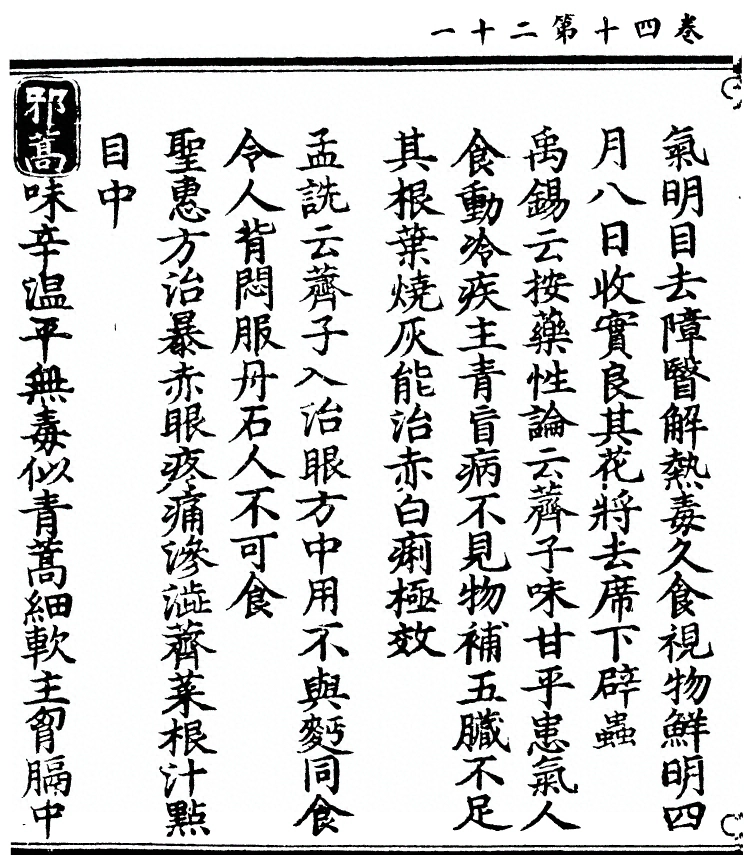 卷四十第二十一
氣明目去障瞖解熱毒久食視物鮮明四
月八日收實良其花將去席下辟蟲
禹錫云按藥性論云薺子味甘平患氣人
食動冷疾主青盲病不見物補五臟不足
其根葉燒灰能治赤白痢極效
孟詵云薺子入治眼方中用不與麪同食
令人背悶服丹石人不可食
聖惠方治暴赤眼疼痛滲澁薺菜根汁點
目中
邪蒿味辛溫平無毒似青蒿細軟主胷膈中